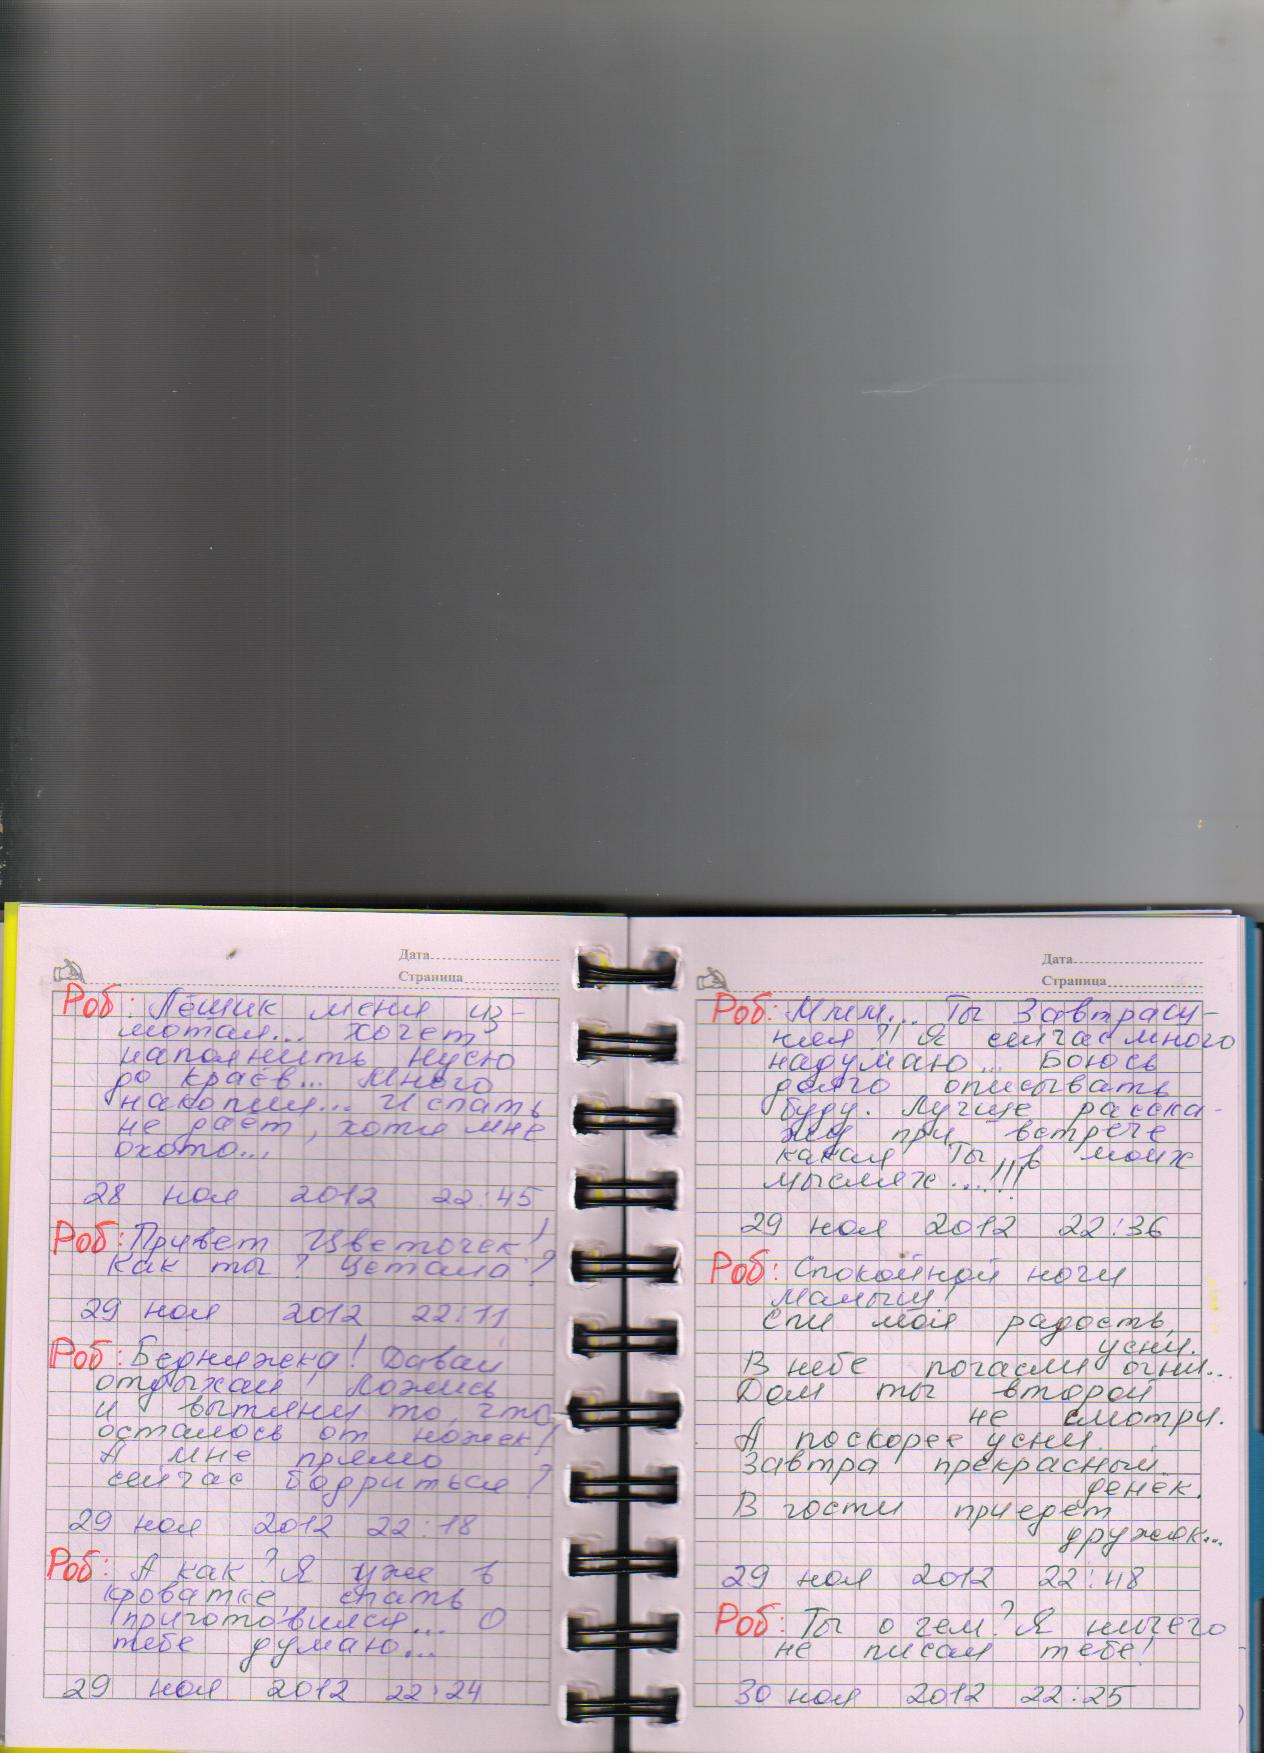 Дата
Страница
Роб: Лёшик меня из-
мотал... хочет
наполнить нусю
до краёв... Много
накопил... И спать
не дает, хотя мне
охота...
28 ноя 2012 22:45
Роб: Привет Цветочек!
Как ты? Цетала?
29 ноя 2012 22:11
Роб: Бедняжека! Давай
отдыхай. Ложись
и вытяни то, что
осталось от ножек!
А мне прямо
сейчас бодриться?
29 ноя 2012 22:18
Роб: А как? Я уже в
кроватке, спать
приготовился... О
тебе думаю...
29 ноя 2012 22:24
Дата
Страница
Роб: Ммм... Ты Завтрасу-
ния?!! Я сейчас много
надумаю... Боюсь
долго описывать
буду. Лучше расска-
жу при встрече
какая Ты в моих
мыслях...!!!
29 ноя 2012 22:36
Роб: Спокойной ночи
малыш!
Спи моя радость,
усни.
В небе погасли огни...
Дом ты второй
не смотри.
А поскорее усни.
Завтра прекрасный
денек.
В гости приедет
дружок...
29 ноя 2012 22:48
Роб: Ты о чем? Я ничего
не писал тебе!
30 ноя 2012 22:25